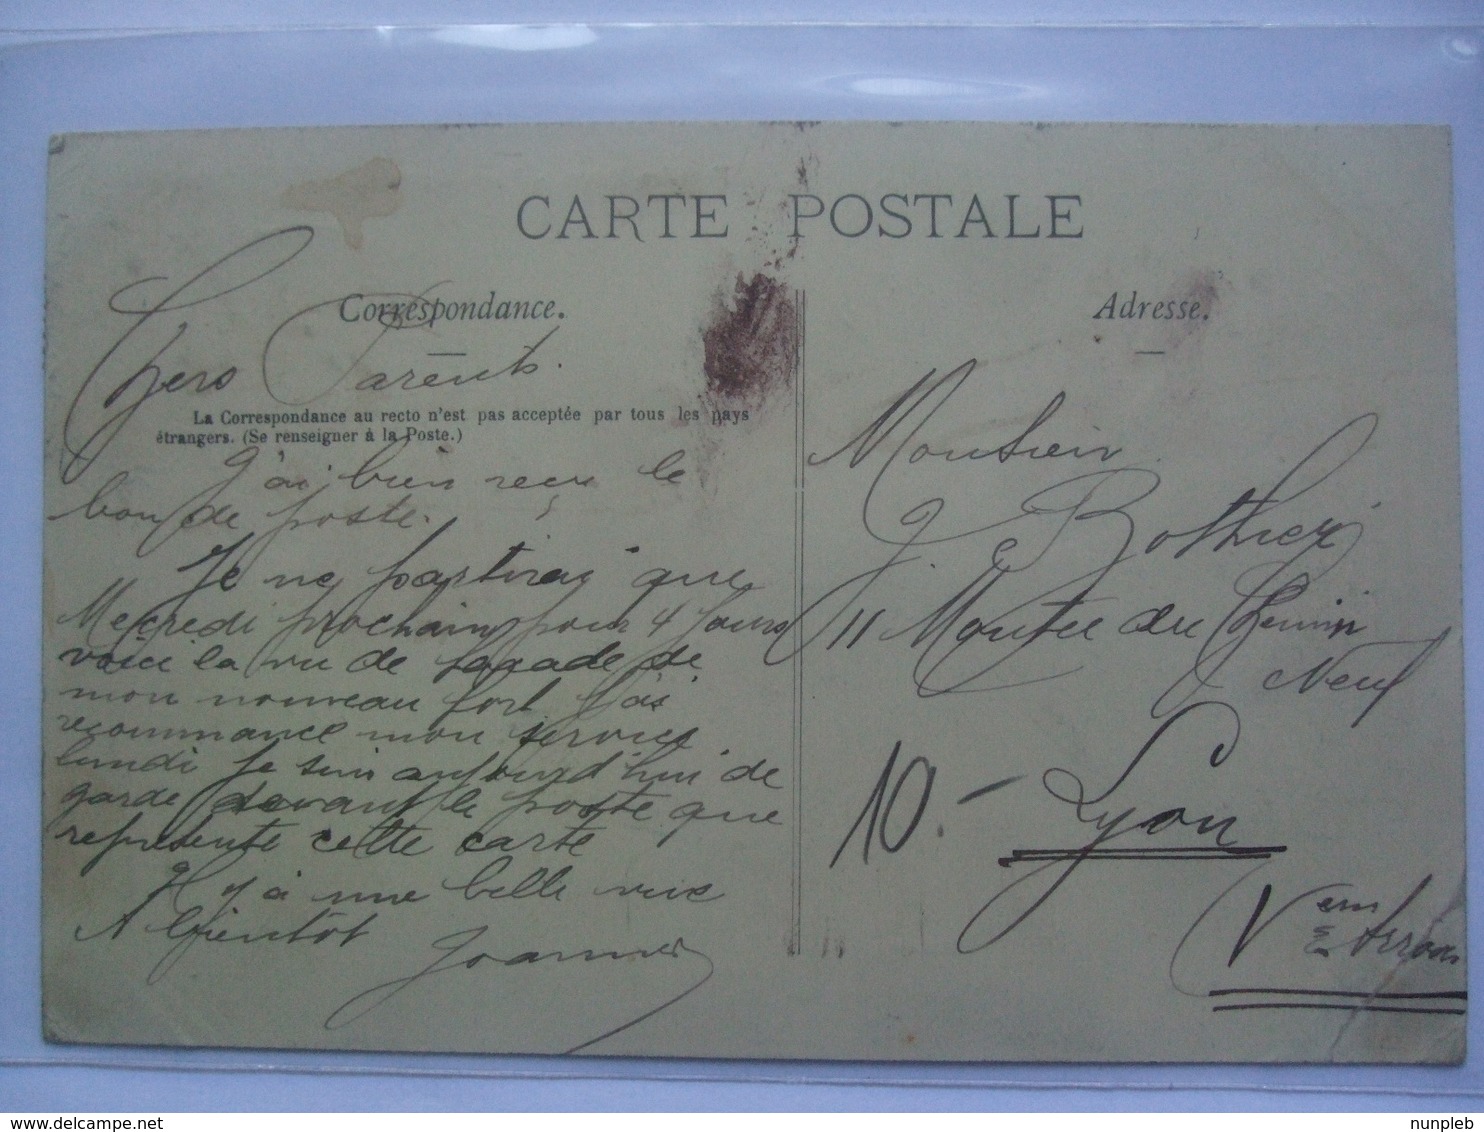 CARTE POSTALE
Correspondance.
Chers Parents.
La Correspondance au recto n'est pas acceptée par tous les pays
étrangers. (Se renseigner à la Poste.)
J'ai bien reçu le
bon de poste.
Je ne partirai que
Mecredi prochain pour 4 Jours
voici la vu de façade de
mon nouveau fort J'ai
recommancé mon service
lundi Je suis aujourd'hui de
garde devant le poste que
represente cette carte
Il y à une belle vue
A Bientôt
Joannès
Adresse.
Monsieur
J. Bothier
11 Montée du Chemin
Neuf
10.- Lyon
Vem Arron
delcampe.net
nunpleb